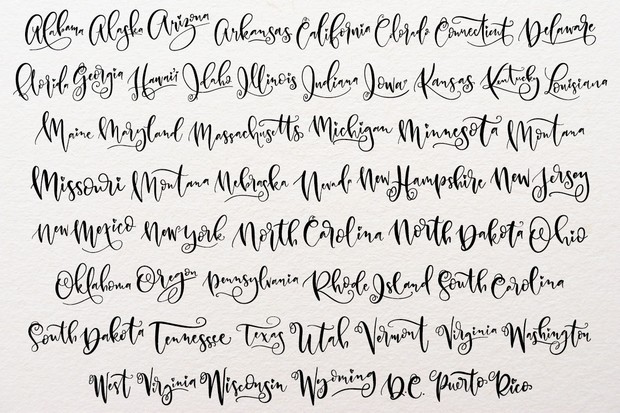 Alabama Alaska Arizona Arkansas California Colorado Connecticut Delaware
Florida Georgia Hawai'i Idaho Illinois Indiana Iowa Kansas Kentucky Louisiana
Maine Maryland Massachusetts Michigan Minnesota Montana
Missouri Montana Nebraska Nevada New Hampshire New Jersey
New Mexico New York North Carolina North Dakota Ohio
Oklahoma Oregon Pennsylvania Rhode Island South Carolina
South Dakota Tennessee Texas Utah Vermont Virginia Washington
West Virginia Wisconsin Wyoming D.C. Puerto Rico